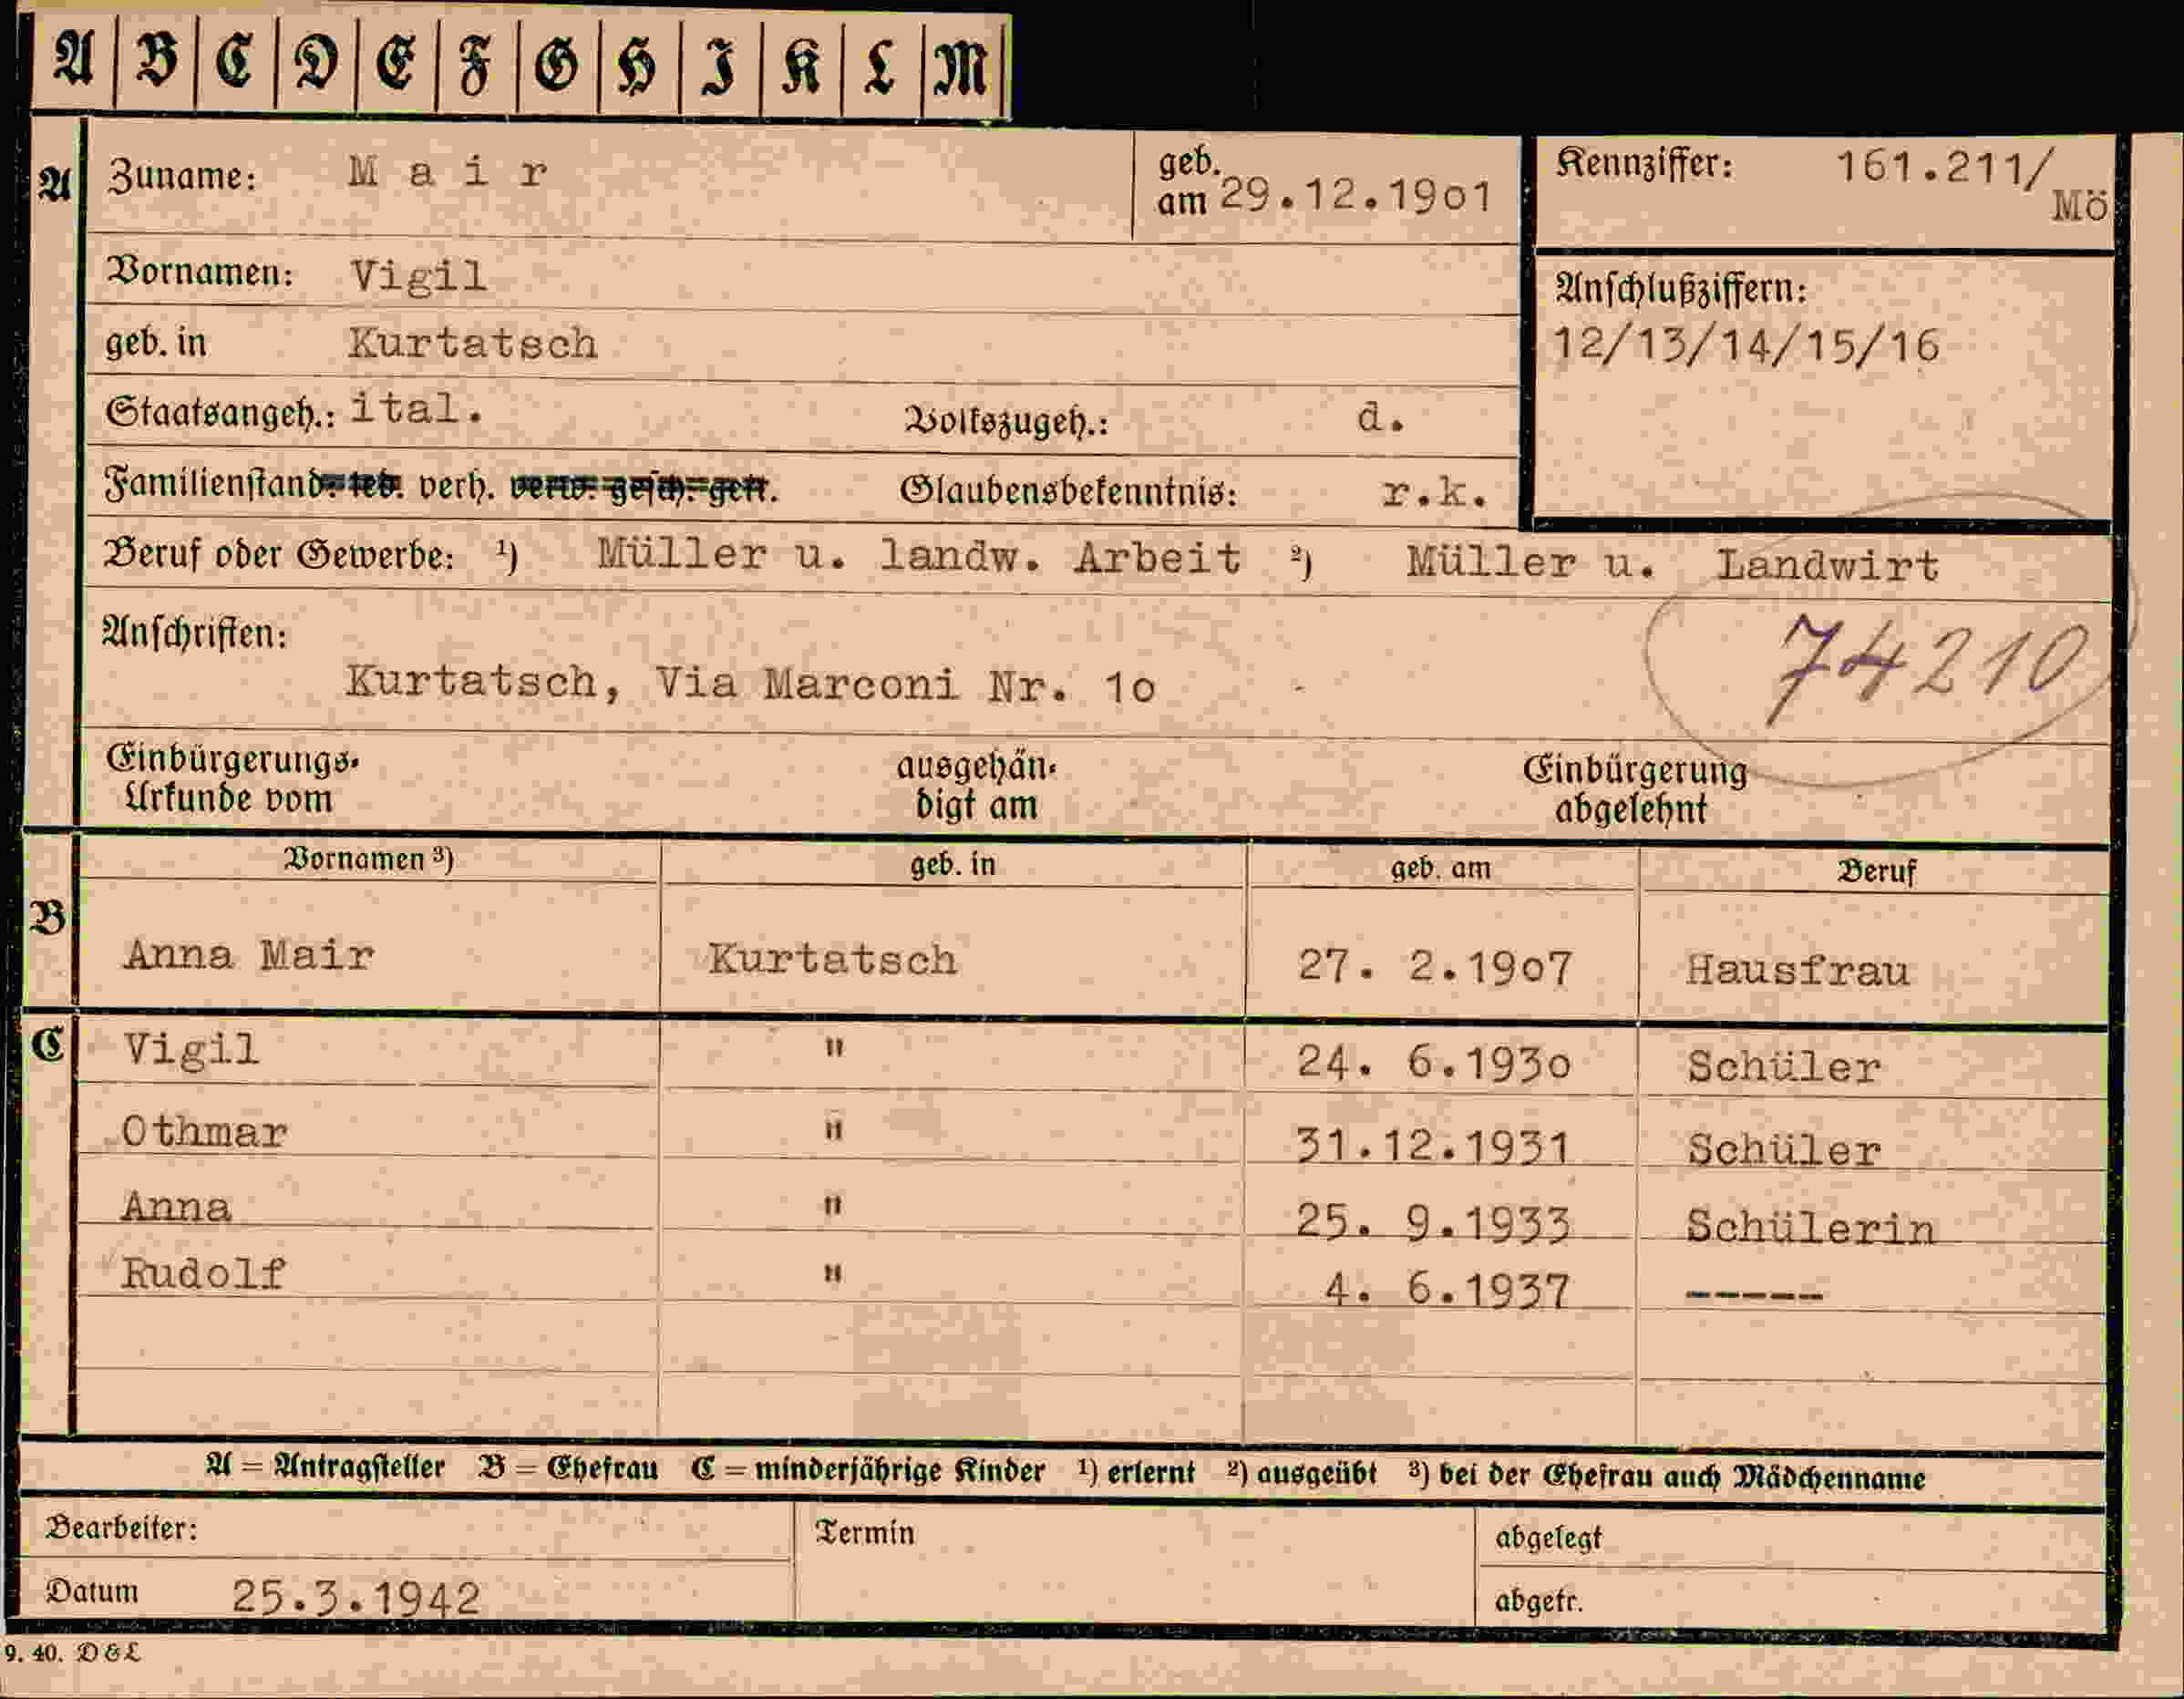 A B C D E F G H I K L M
A Zuname: Mair geb. am 29.12.1901 Kennziffer: 161.211/Mö
Vornamen: Vigil
Anschlußziffern:
geb. in Kurtatsch 12/13/14/15/16
Staatsangeh.: ital. Volkszugeh.: d.
Familienstand: led. verh. verw. gesch. getr. Glaubensbekenntnis: r.k.
Beruf oder Gewerbe: ¹) Müller u. landw. Arbeit ²) Müller u. Landwirt
Anschriften:
Kurtatsch, Via Marconi Nr. 10 74210
Einbürgerungs- ausgehän- Einbürgerung
Urkunde vom digt am abgelehnt
Vornamen ³) geb. in geb. am Beruf
B Anna Mair Kurtatsch 27. 2.1907 Hausfrau
C Vigil " 24. 6.1930 Schüler
Othmar " 31.12.1931 Schüler
Anna " 25. 9.1933 Schülerin
Rudolf " 4. 6.1937 -----
A = Antragsteller B = Ehefrau C = minderjährige Kinder ¹) erlernt ²) ausgeübt ³) bei der Ehefrau auch Mädchenname
Bearbeiter: Termin abgelegt
Datum 25.3.1942 abgetr.
9. 40. D & L